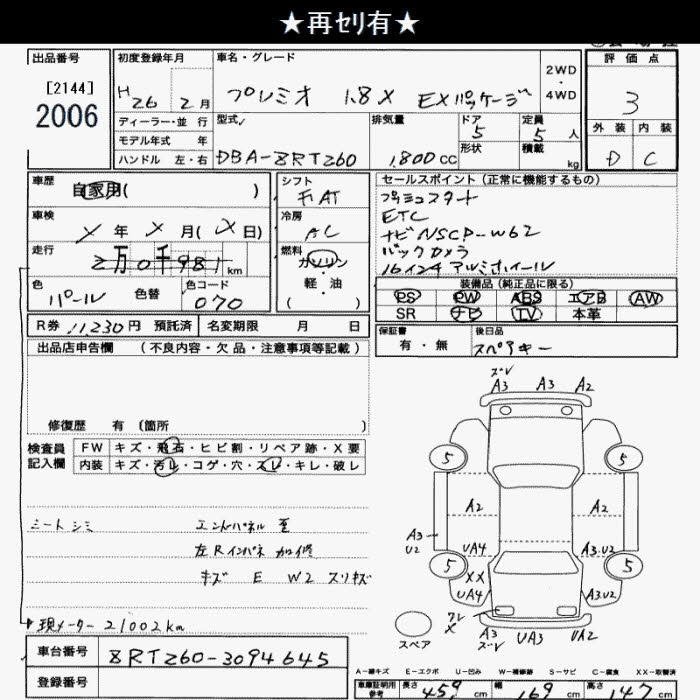 ★再セリ有★
出品番号
[2144]
2006
初度登録年月
H26 2月
ディーラー・並行
モデル年式 年
ハンドル 左・右
車名・グレード
プレミオ 1.8X EXパッケージ
2WD・4WD
型式
DBA-ZRT260
排気量
1,800CC
ドア
5
形状
定員
5人
積載
kg
評価点
3
外装 内装
D C
車歴
自家用( )
車検
X年X月(X日)
走行
2万0千981km
色
パール
色替
色コード
070
シフト
FAT
冷房
AC
燃料
ガソリン
軽・油
( )
セールスポイント (正常に機能するもの)
プッシュスタート
ETC
ナビNSCP-W62
バックカメラ
16インチ アルミホイール
装備品(純正品に限る)
PS PW ABS エアB AW
SR ナビ TV 本革
R券 11230円 預託済 名変期限 月 日
保証書
有・無
後日品
スペアキー
出品店申告欄 (不良内容・欠品・注意事項等記載)
修復歴 有 (箇所 )
検査員
記入欄
FW キズ・飛石・ヒビ割・リペア跡・X要
内装 キズ・汚レ・コゲ・穴・スレ・キレ・破レ
シートシミ
エンドパネル 歪
左Rインパネ 加修
キズ E W2 スリキズ
現メーター 21002km
ズレ
A3 A3 A2
5 5
A2 A2
A3
U2
UA4 A3.U2
5 5
XX
UA4 A3U2
ワレ
X
A3
ズレ
UA3 UA2
スペア
車台番号
ZRT260-3094645
登録番号
A-線キズ E-エクボ U-凹み W-補修跡 S-サビ C-腐食 XX-取替済
車庫証明用
参考
長さ 459cm 幅 169cm 高さ 147cm